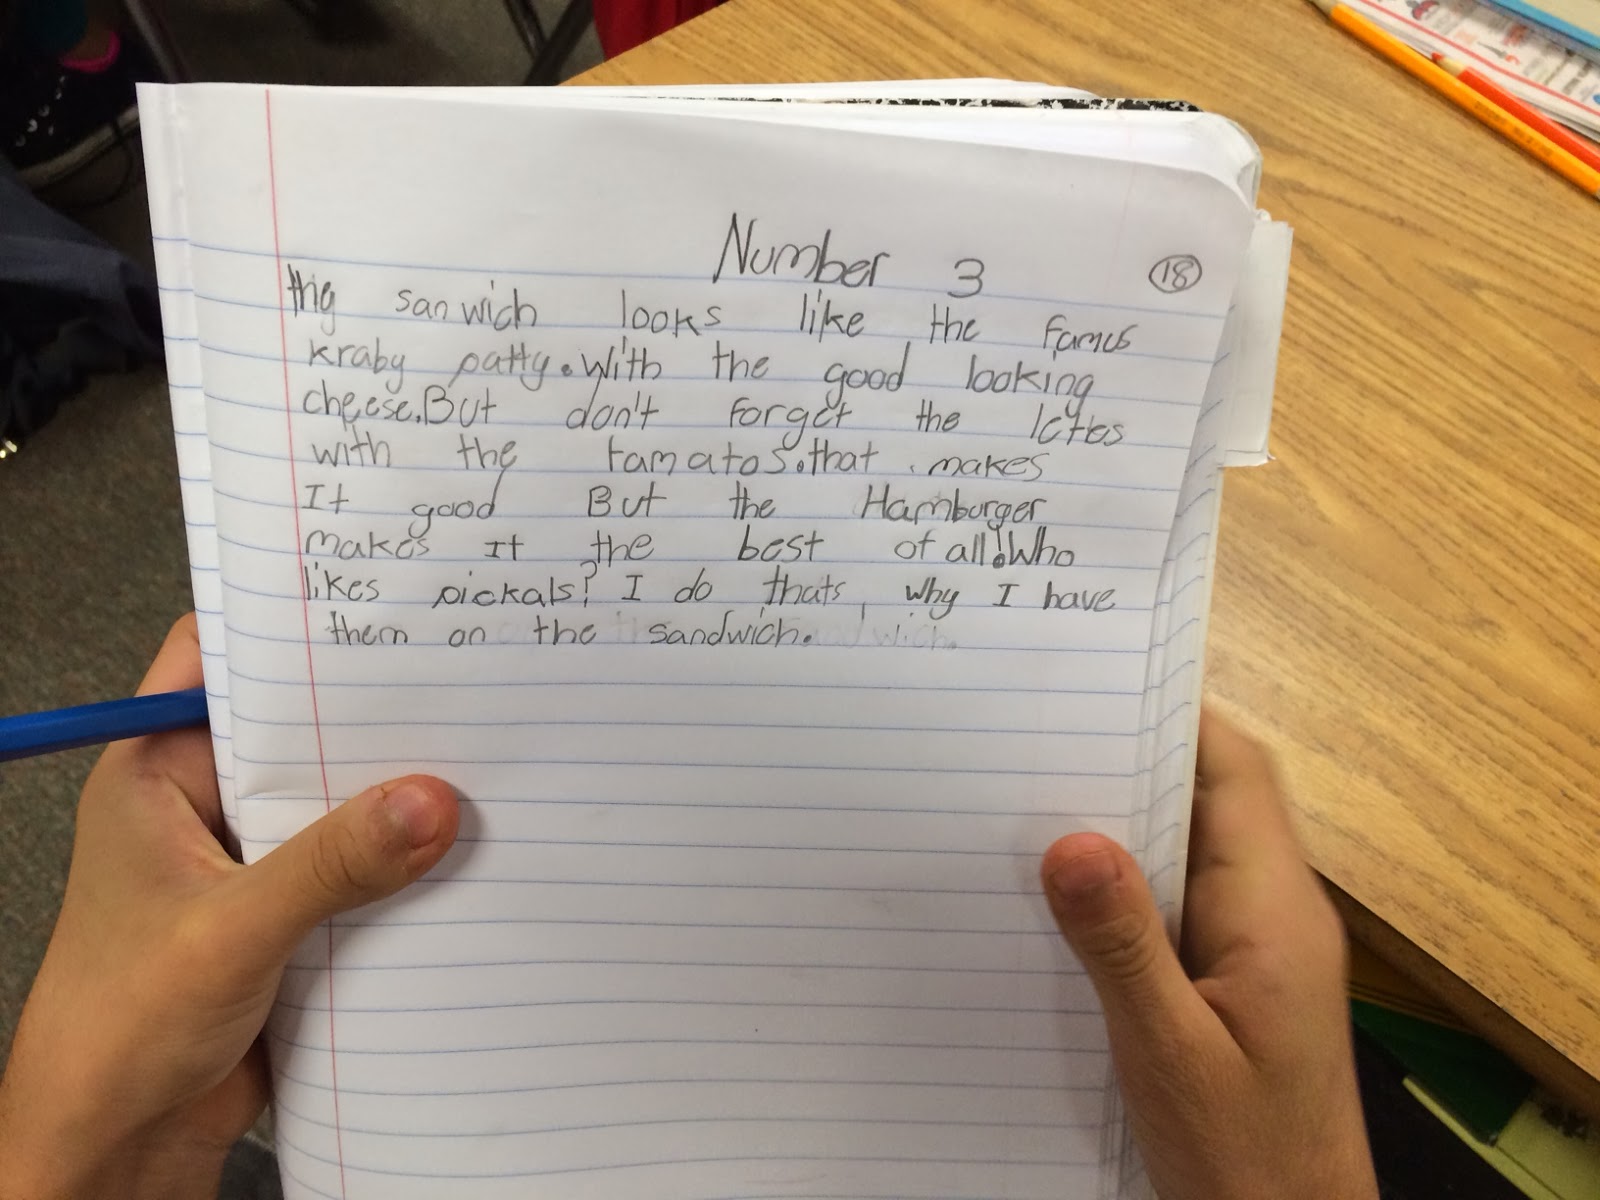 Number 3
18
sanwich looks like the famus
kraby patty. With the good looking
cheese. But don't forget the
with the tamatos. that makes
It good But the Hamburger
makes It the best of all! Who
likes pickals? I do thats, why I have
them on the sandwich.